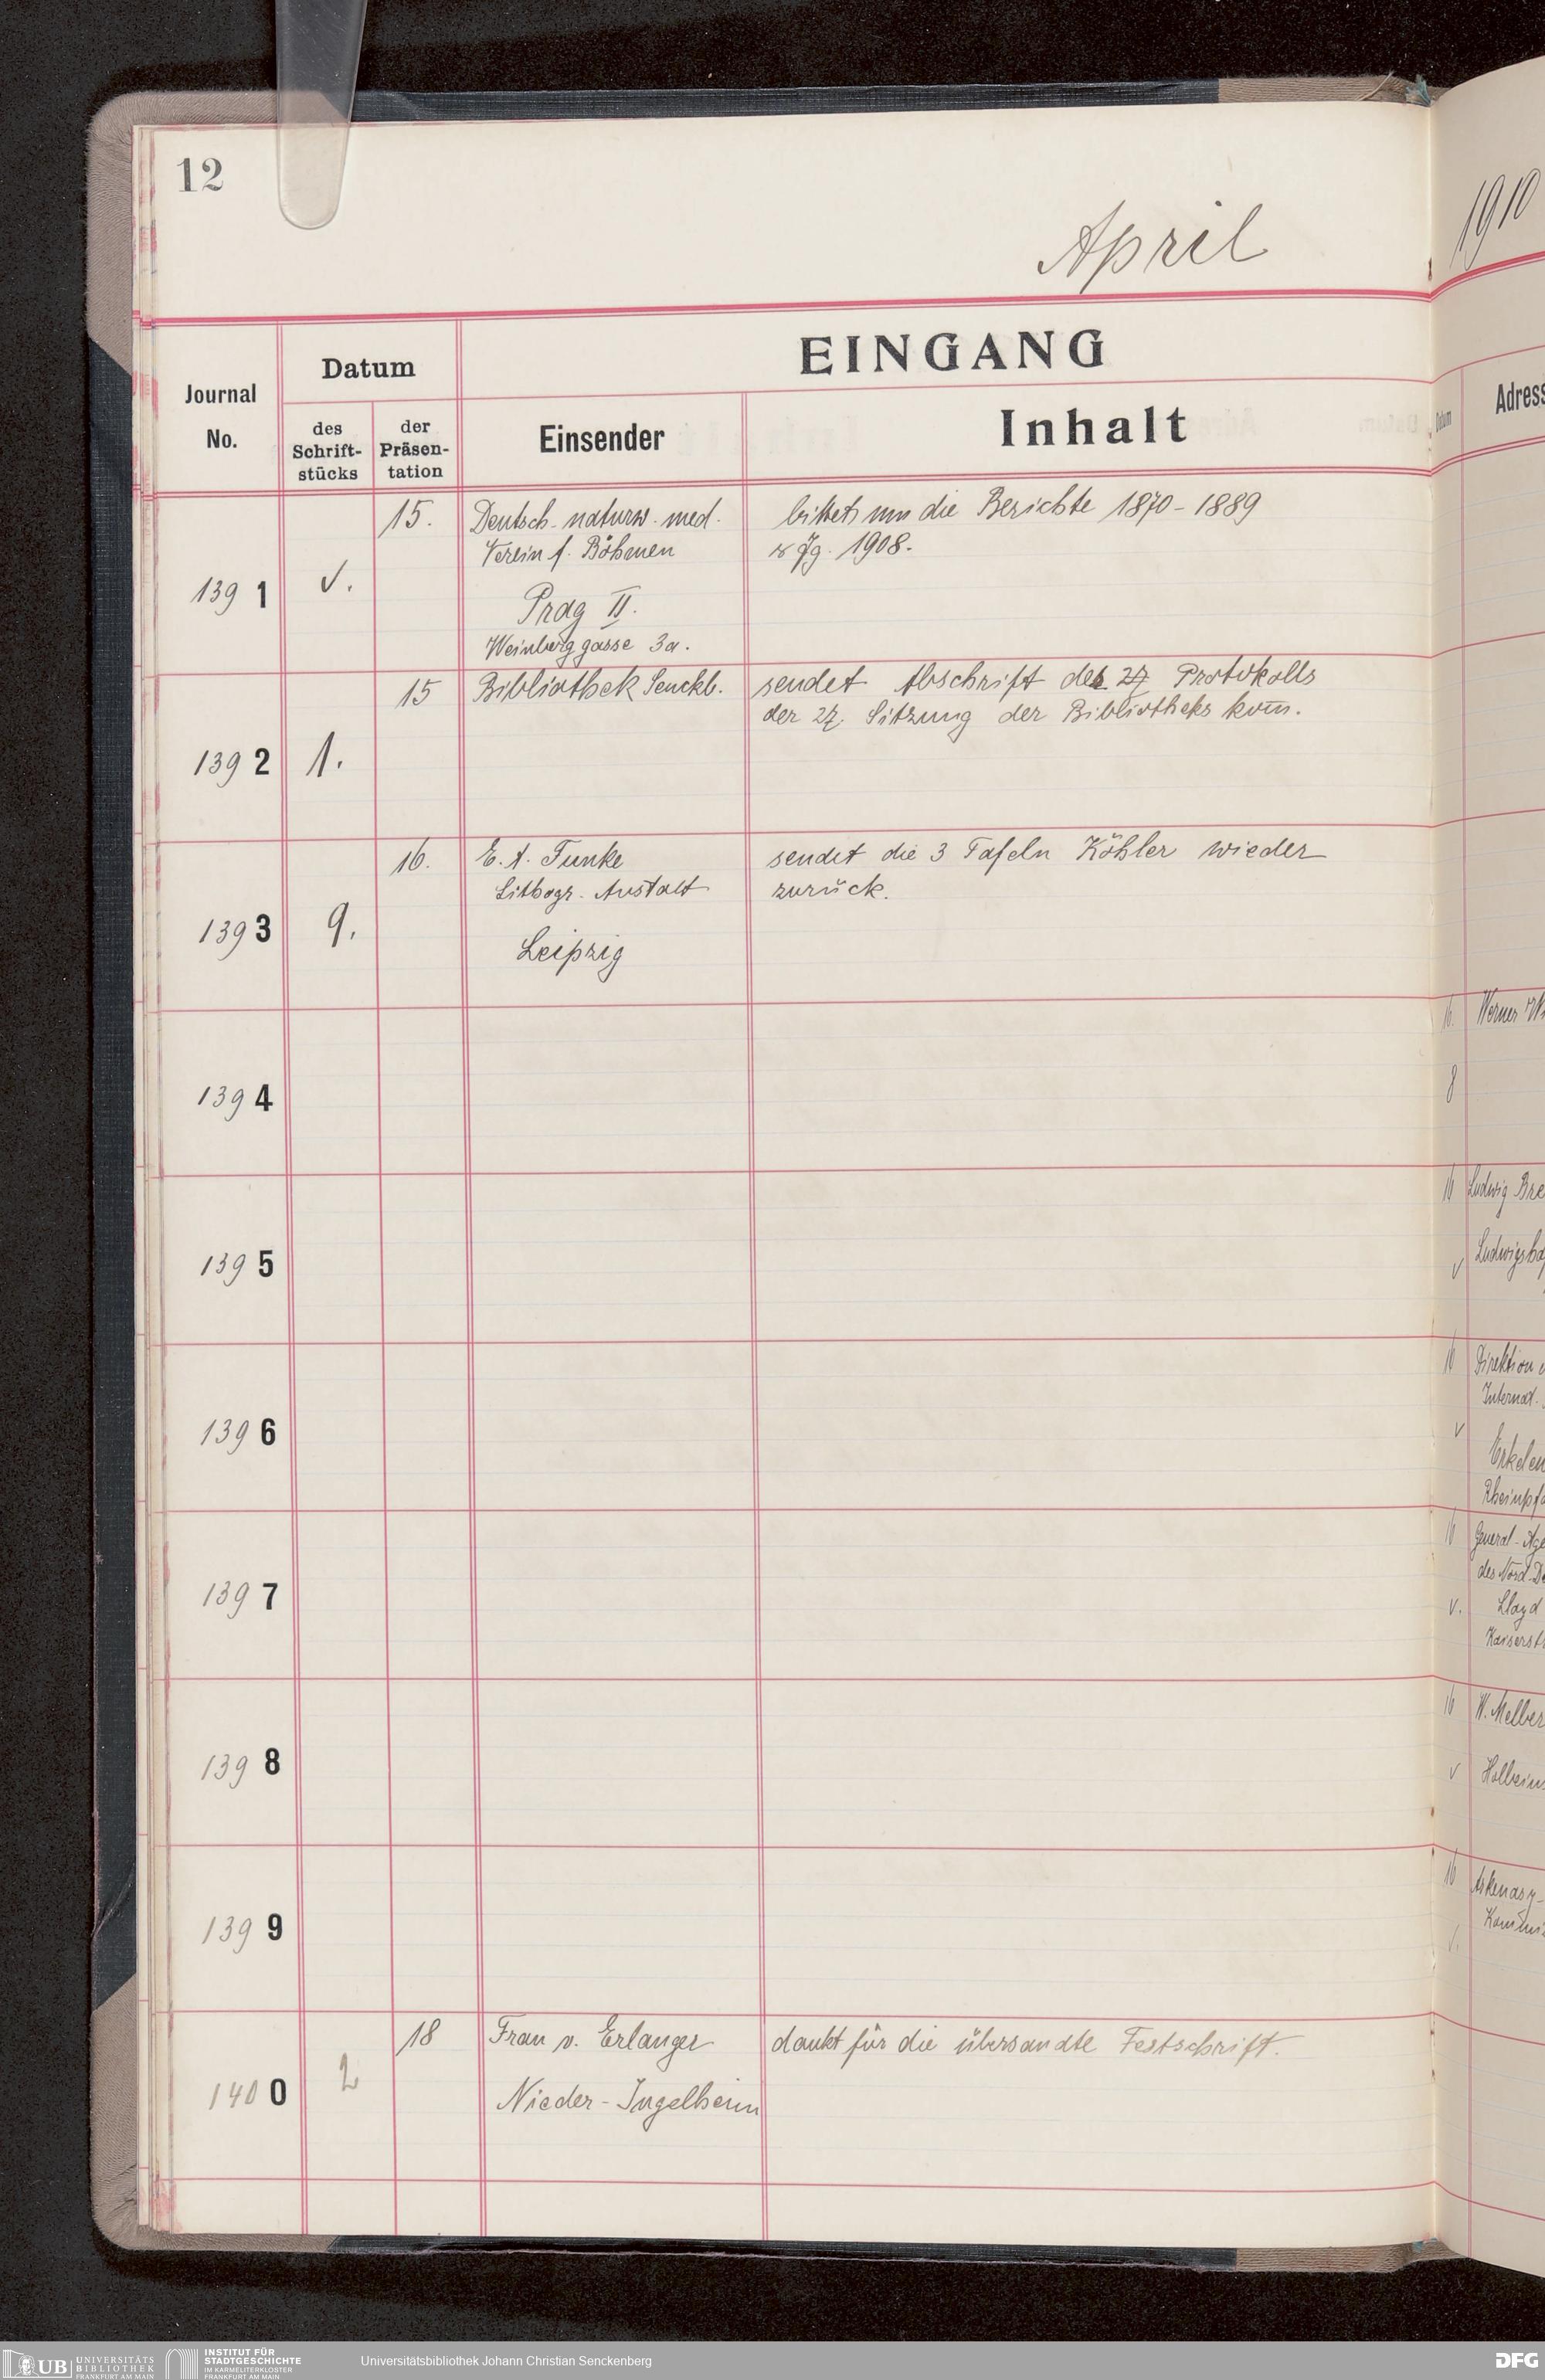 12
April
1910
EINGANG
Datum
Journal
No.
des
Schrift-
stücks
der
Präsen-
tation
Einsender
Inhalt
Datum
Adress
1391
v.
15.
Deutsch. naturw. med.
Verein f. Böhmen
Prag II.
Weinberggasse 3a.
bittet um die Berichte 1870-1889
& Jg. 1908.
1392
1.
15
Bibliothek Senckb.
sendet Abschrift des 27. Protokolls
der 27. Sitzung der Bibliotheks kom.
1393
9.
16.
E. A. Funke
Lithogr. Anstalt
Leipzig
sendet die 3 Tafeln Köhler wieder
zurück.
1394
16.
Werner
8
1395
16
Ludwig Bre
v
Ludwigsha
1396
16
Direktion
Internat.
v
Erkelen
Rheinpf
1397
16
General-Age
des Nord-De
v.
Lloyd
Kaiserst
1398
16
W. Melber
v
Holbeins
1399
16
Askenasy-
Kommis
v.
1400
2
18
Frau v. Erlanger
Nieder-Ingelheim
dankt für die übersandte Festschrift.
UB UNIVERSITÄTS
BIBLIOTHEK
FRANKFURT AM MAIN
INSTITUT FÜR
STADTGESCHICHTE
IM KARMELITERKLOSTER
FRANKFURT AM MAIN
Universitätsbibliothek Johann Christian Senckenberg
DFG